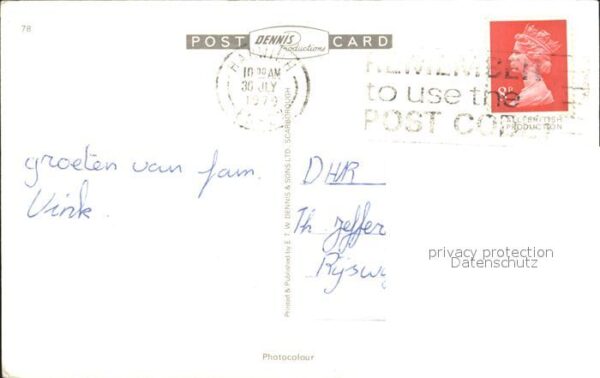 78
POST DENNIS Productions CARD
HARWICH
10 30 AM
30 JLY
1979
REMEMBER
to use the
POST CODE
8P
groeten van fam.
Vink.
DHR
Th Jeffer
Rijswy
privacy protection
Datenschutz
Printed & Published by E. T. W. DENNIS & SONS LTD. SCARBOROUGH
Photocolour